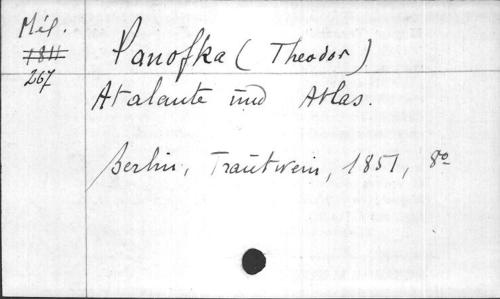 Mél.
1811
267
Panofka (Theodor)
Atalante und Atlas.
Berlin, Trautwein, 1851, 8o